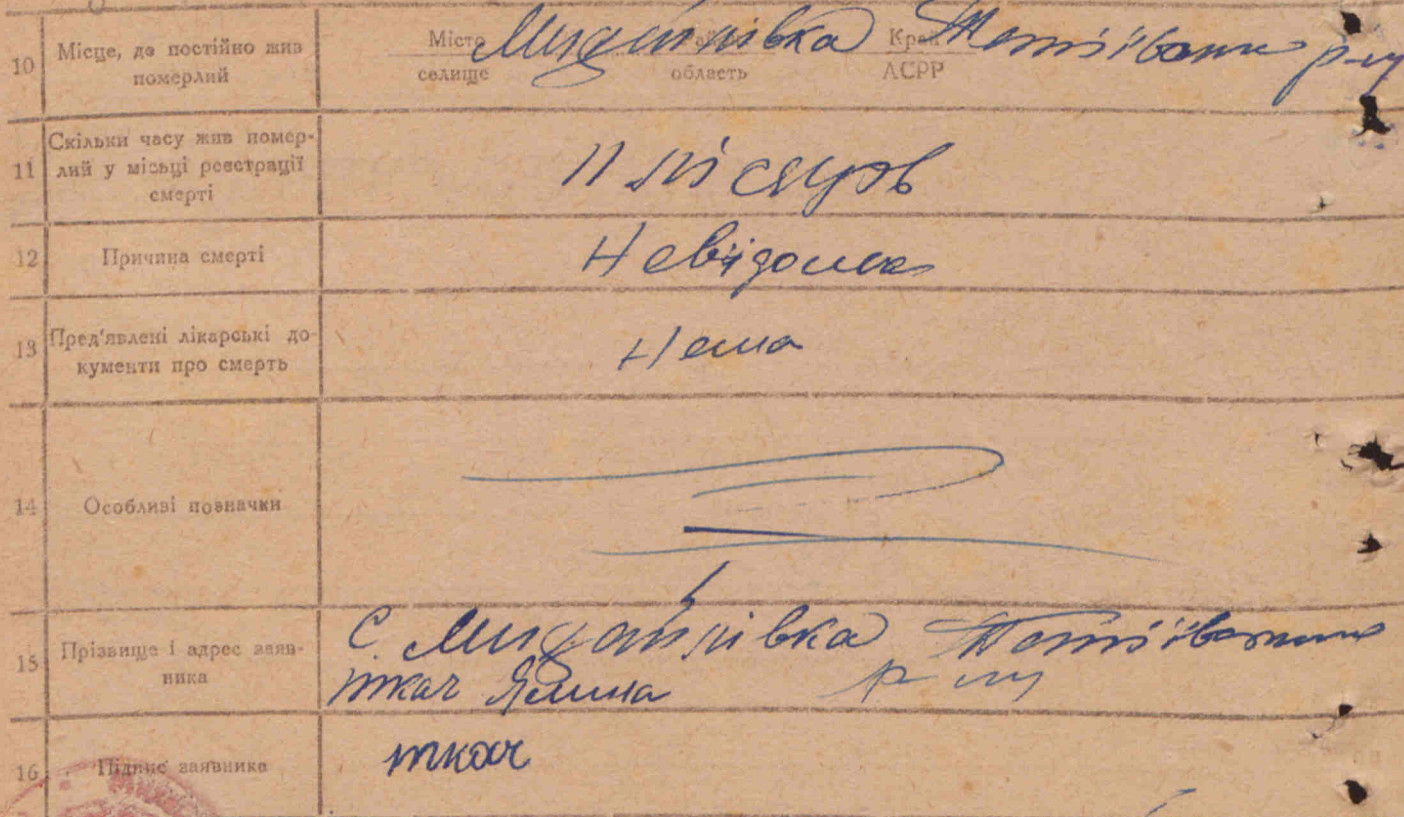 10 Місце, де постійно жив
померлий
Місто
селище
область
Край
АСРР
Михайлівка Тетіївського р-ну
11 Скільки часу жив помер-
лий у місці реєстрації
смерті
11 місяцов
12 Причина смерті
Невідома
13 Пред'явлені лікарські до-
кументи про смерть
Нема
14 Особливі позначки
15 Прізвище і адрес заяв-
ника
с. Михайлівка
ткач
р-ну
16 Підпис заявника
ткач